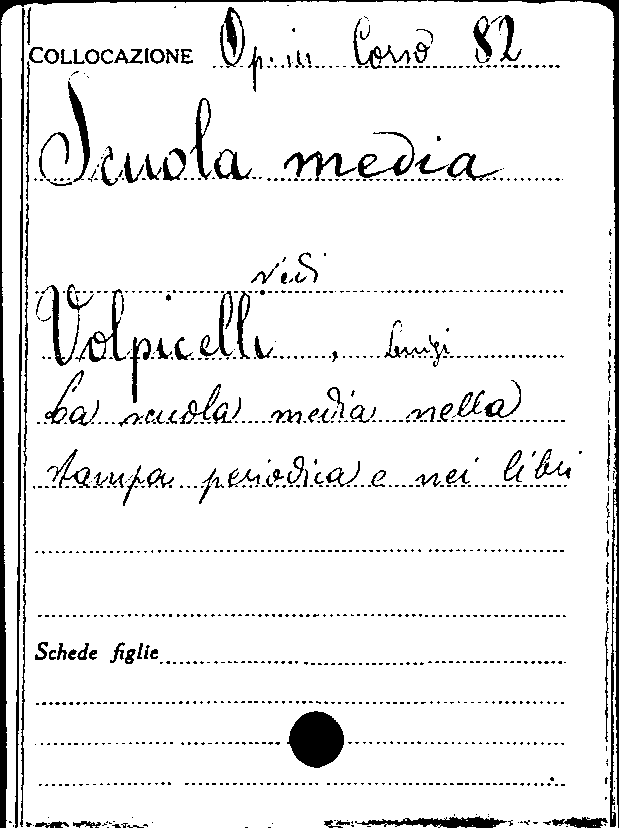 COLLOCAZIONE Op. in Corso 82
Scuola media
vedi
Volpicelli, Luigi
La scuola media nella
stampa periodica e nei libri
Schede figlie